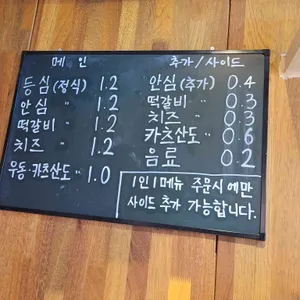 메 인
등심(정식) 1.2
안심 〃 1.2
떡갈비 〃 1.2
치즈 〃 1.2
우동·카츠산도 〃 1.0
추가/사이드
안심(추가) 0.4
떡갈비 〃 0.3
치즈 〃 0.3
카츠산도 〃 0.6
음료 0.2
1인 1메뉴 주문시에만
사이드 추가 가능합니다.